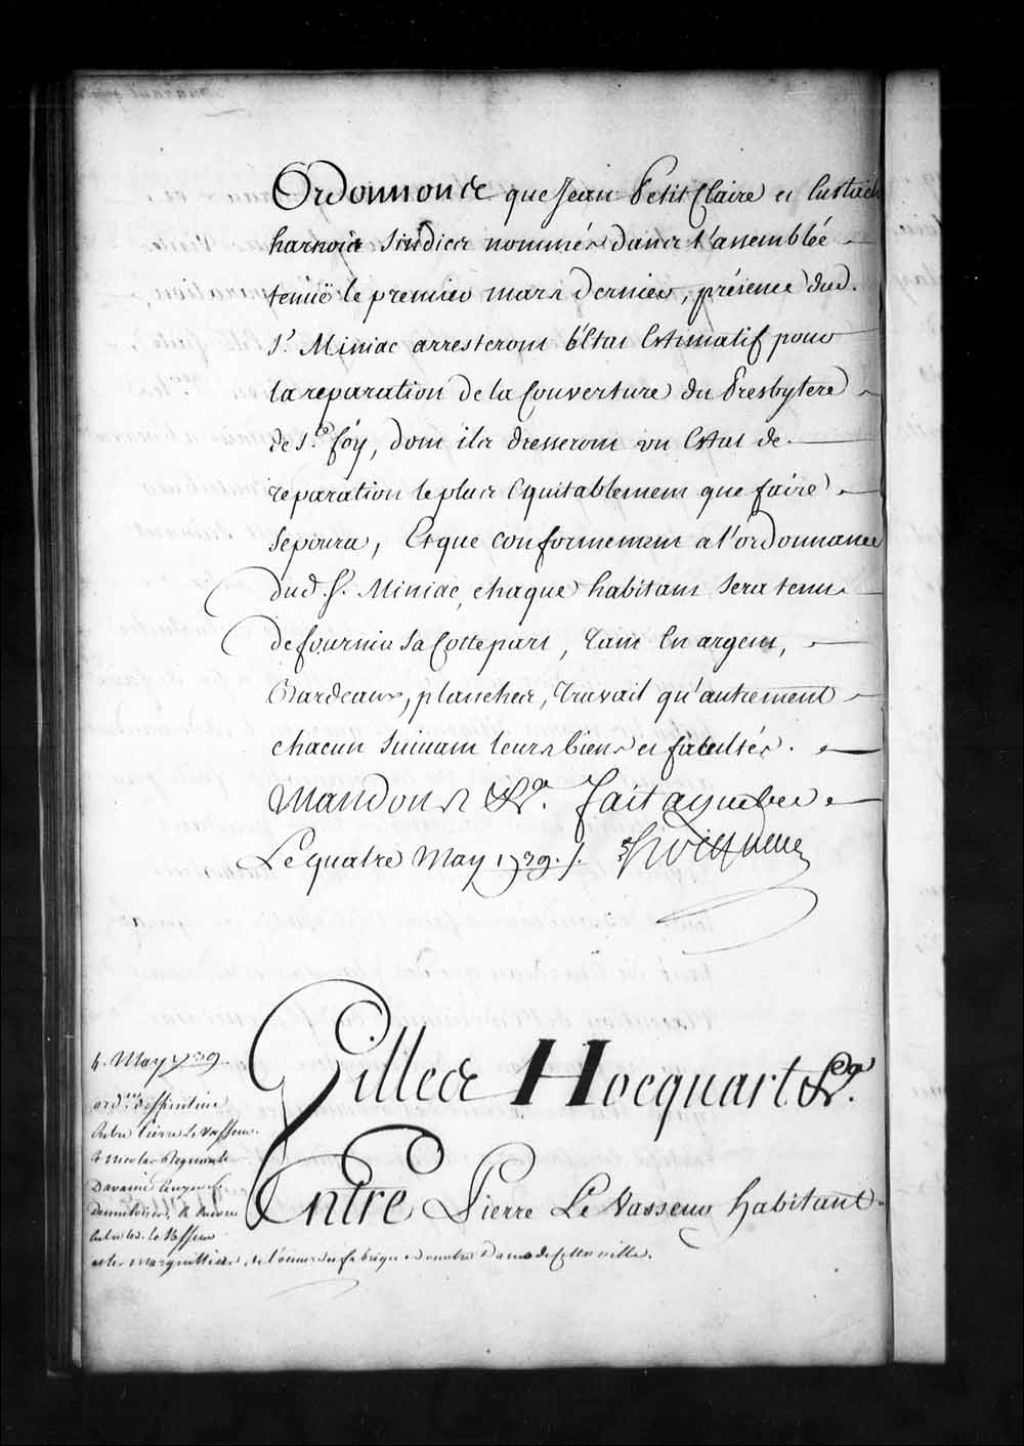 Ordonnons que Jean Petit Claire et Eustache
harnois Sindics nommés dans l'assemblée
tenuë le premier mars dernier, présence dud.
Sr. Miniac arresterons l'Etat Estimatif pour
la reparation de la Couverture du Presbytere
de Ste. foy, dont ils dresseront un Estat de
reparation le plus Equitablement que faire
se poura, Et que conformement a l'ordonnance
dud. Sr. Miniac, chaque habitant sera tenu
de fournir sa Cottepart, tant En argent,
Bardeaux, planches, travail qu'autrement
chacun Suivant leurs biens et facultés.
Mandons &ca. fait a quebec
Le quatre May 1739. Hocquart
Gilles Hocquart &ca.
4. May 1739
ord.
Entre Pierre Le Vasseur
& Nicolas
Le Vasseur
et les marguilliers de l'oeuvre fabrique de notre Dame de cette ville.
Entre Pierre Le Vasseur habitant